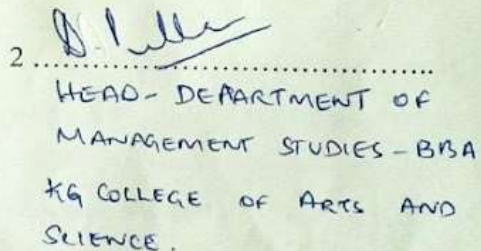 2 ..........................................
HEAD - DEPARTMENT OF
MANAGEMENT STUDIES - BBA
KG COLLEGE OF ARTS AND
SCIENCE.